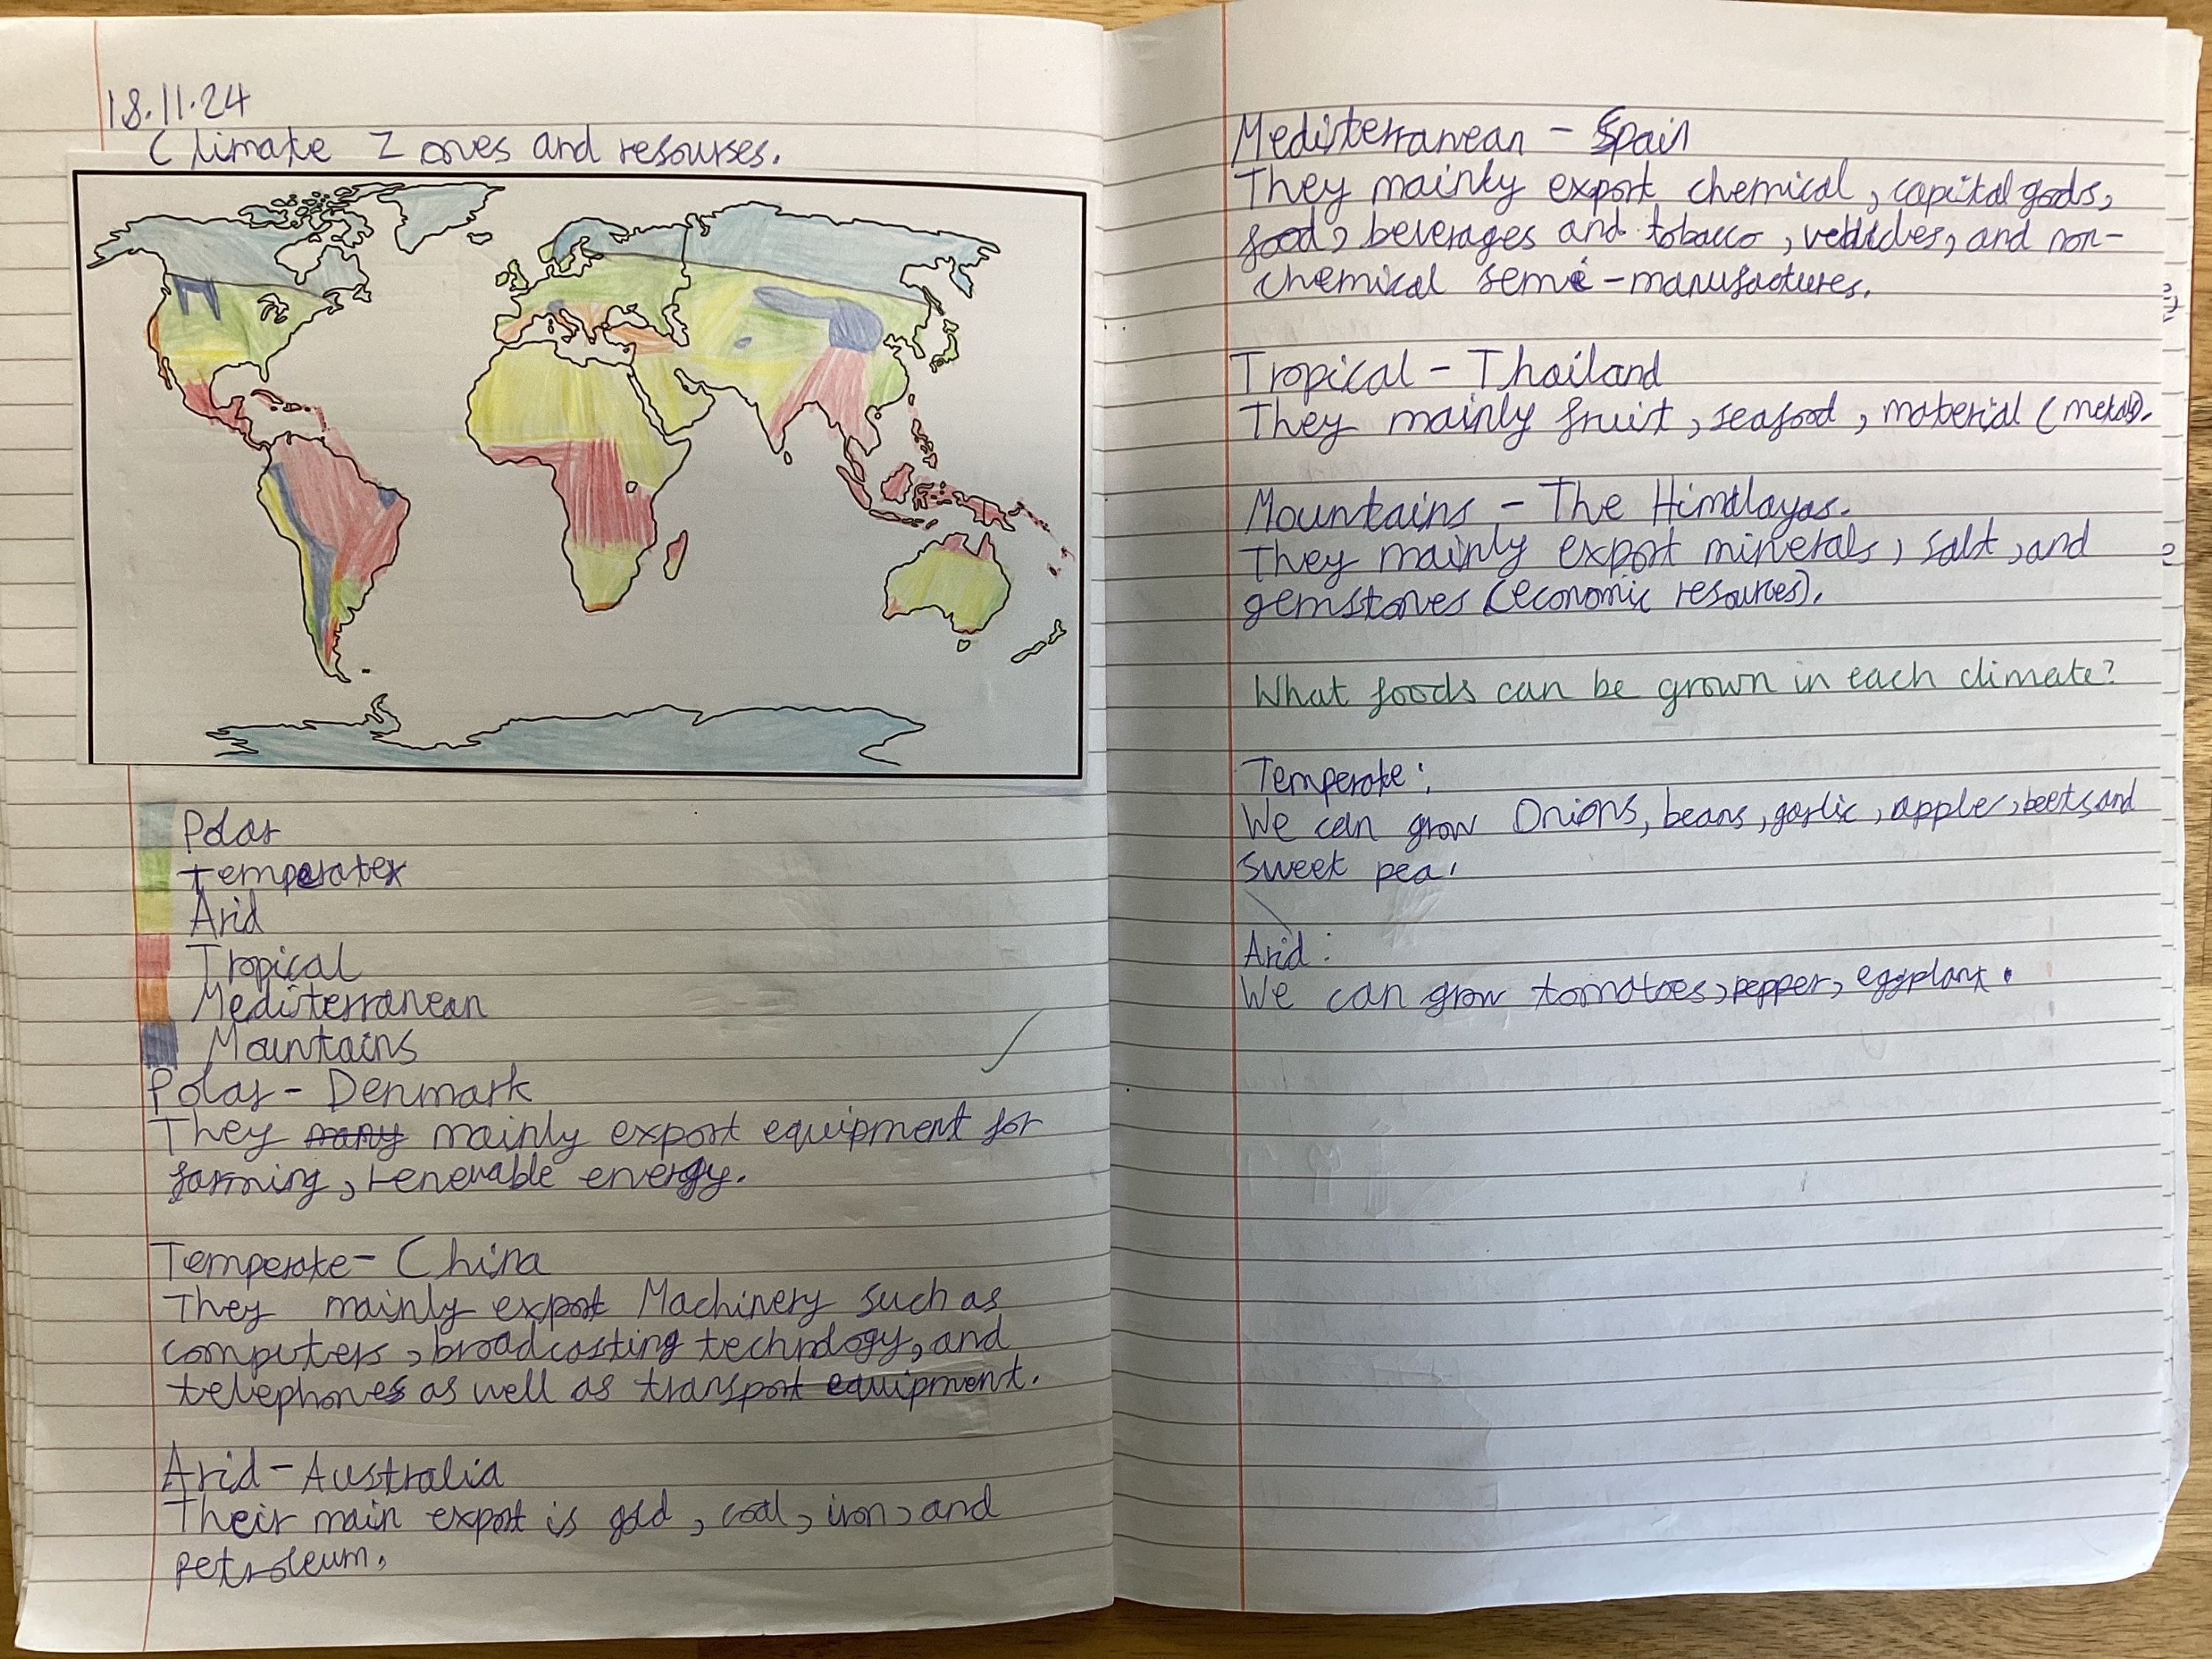 18.11.24
Climate Zones and resourses.
Polar
Temperate
Arid
Tropical
Mediterranean
Mountains
Polar - Denmark
They many mainly export equipment for
farming, renewable energy.
Temperate - China
They mainly export Machinery such as
computers, broadcasting technology, and
telephones as well as transport equipment.
Arid - Australia
Their main export is gold, coal, iron, and
petroleum.
Mediterranean - Spain
They mainly export chemical, capital goods,
food, beverages and tobacco, vehicles, and non-
chemical semi-manufactures.
Tropical - Thailand
They mainly fruit, seafood, material (metal).
Mountains - The Himalayas.
They mainly export minerals, salt, and
gemstones (economic resources).
What foods can be grown in each climate?
Temperate:
We can grow Onions, beans, garlic, apple, beets, and
sweet pea.
Arid:
We can grow tomatoes, pepper, eggplant.